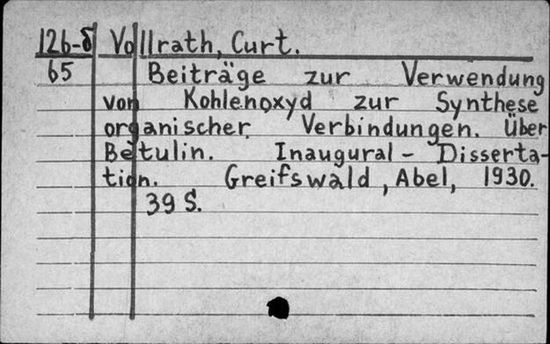 126-δ Vollrath, Curt.
65 Beiträge zur Verwendung
von Kohlenoxyd zur Synthese
organischer Verbindungen. Über
Betulin. Inaugural - Disserta-
tion. Greifswald, Abel, 1930.
39 S.